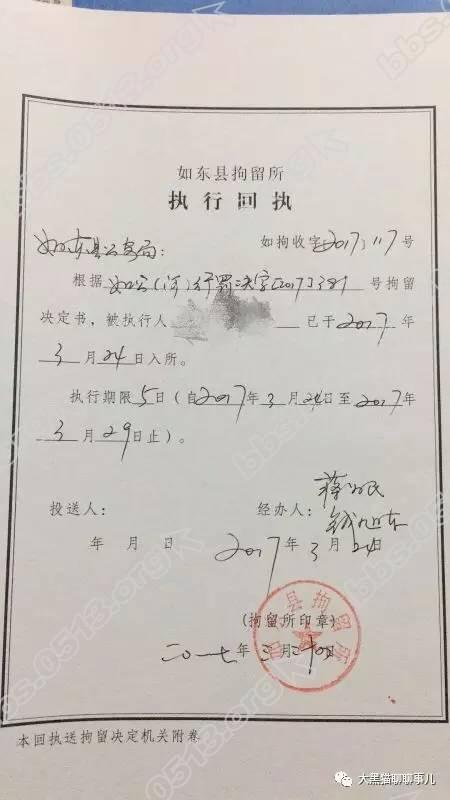 如东县拘留所
执行回执
如东县公安局：
如拘收字[2017]117号
根据 如公(河)行罚决字[2017]381 号拘留
决定书，被执行人 已于2017年
3月24日入所。
执行期限5日（自2017年3月24日至2017年
3月29日止）。
投送人：
经办人：
年 月 日
2017年3月24日
(拘留所印章)
二〇一七年三月二十四日
县拘留所
本回执送拘留决定机关附卷
bbs.0513.org
大黑猫聊聊事儿